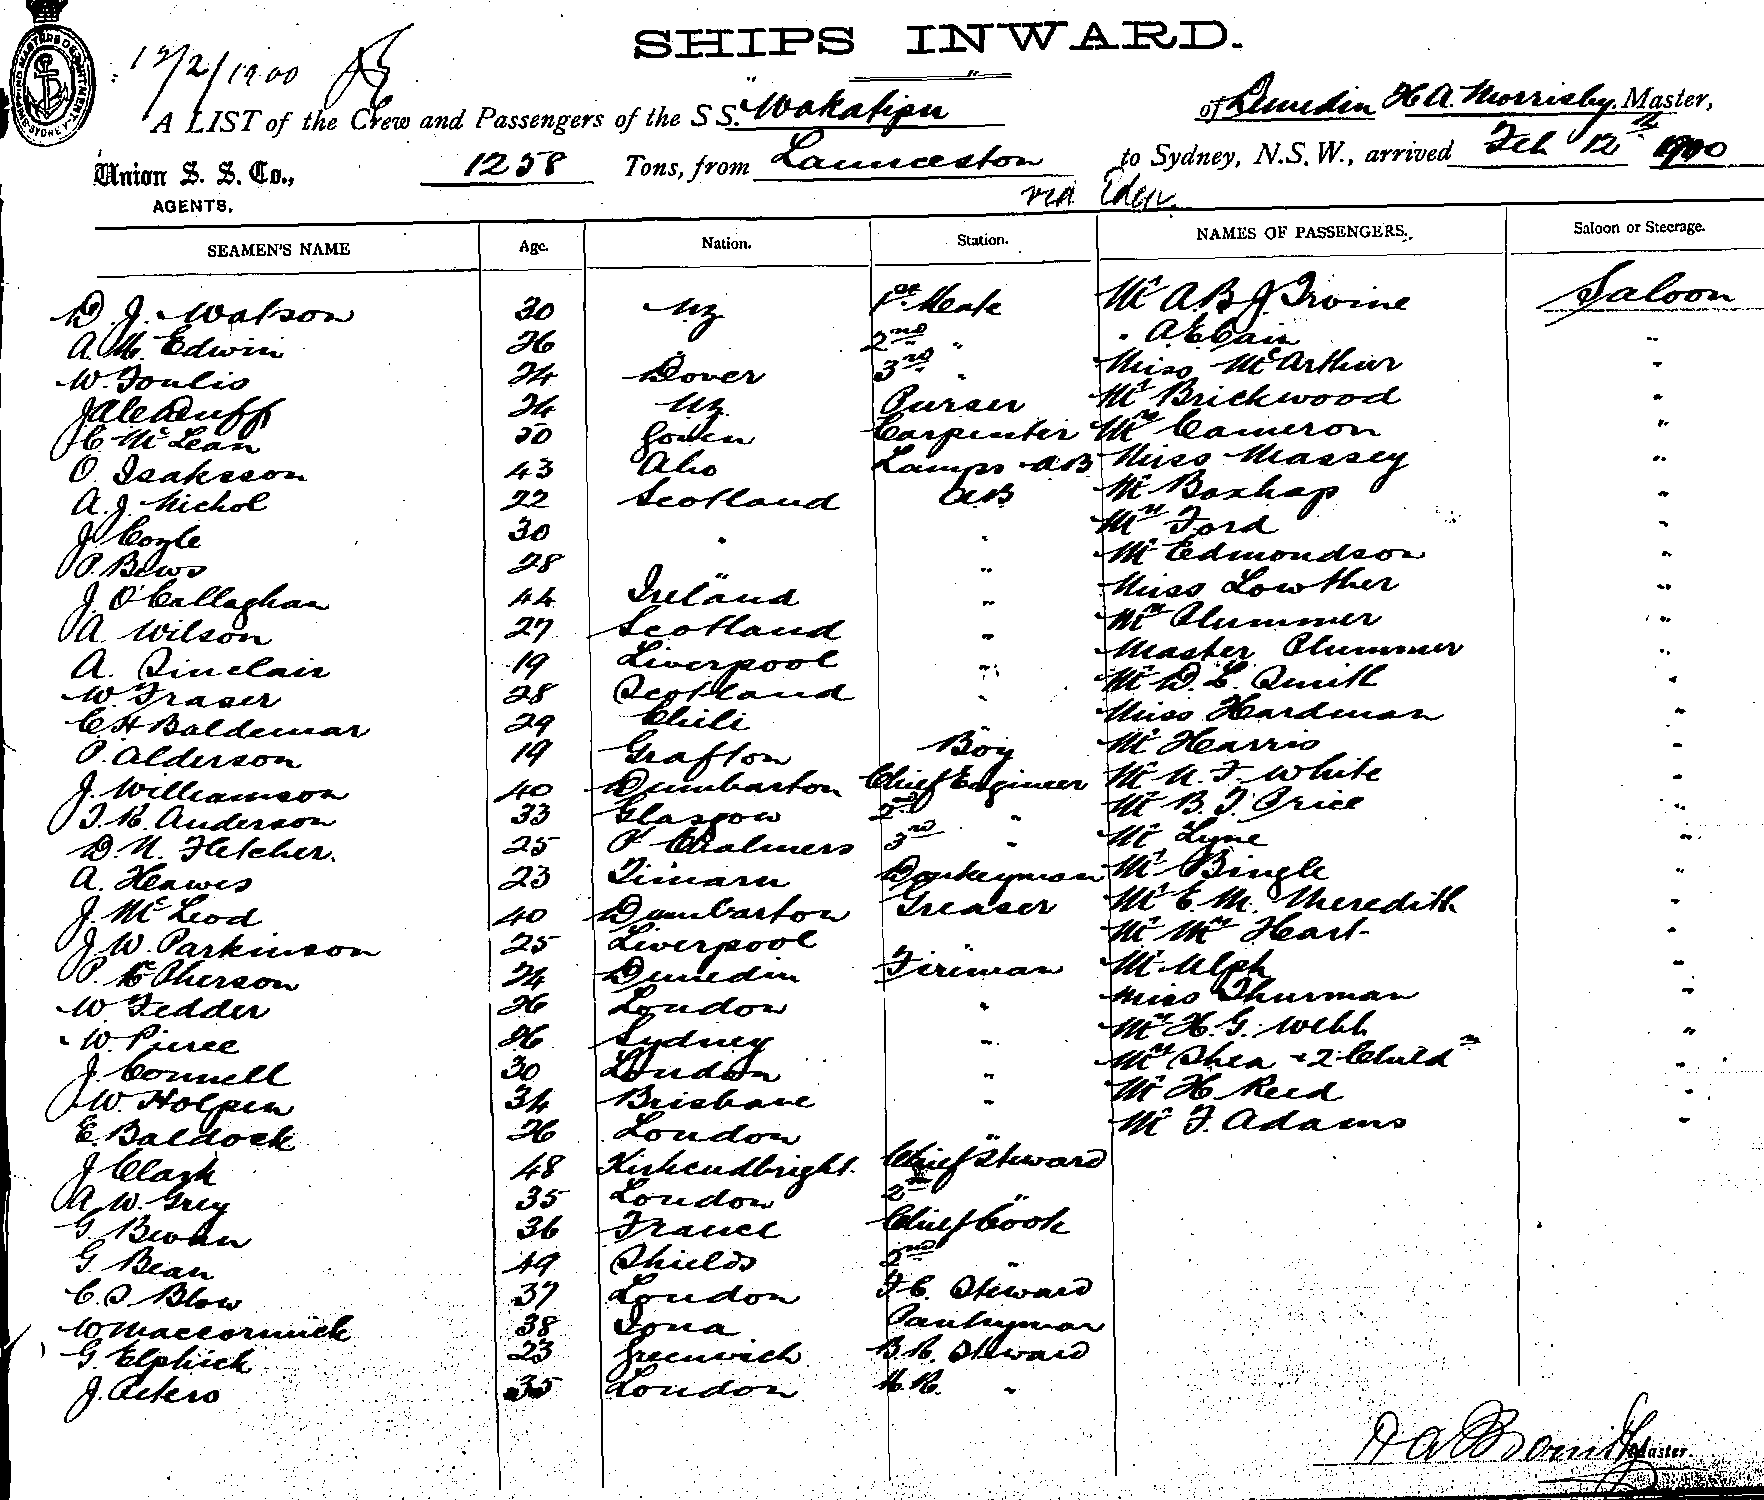 SHIPS INWARD.
12/2/1900
A LIST of the Crew and Passengers of the S.S. "Wakatipu" of Dunedin H A. Morrisby. Master,
Union S. S. Co., 1258 Tons, from Launceston to Sydney, N.S.W., arrived Feb 12th 1900
AGENTS. via Eden.
SEAMEN'S NAME Age. Nation. Station. NAMES OF PASSENGERS. Saloon or Steerage.
D. J. Watson 30 NZ 1st Mate Mr A B J Irvine Saloon
A. M. Edwin 26 " 2nd " " A. E Cain "
W. Foulis 24 Dover 3rd " Miss McArthur "
24 NZ. Purser Mr Brickwood "
C McLean 50 Carpenter Mrs Cameron "
O Isaksson 43 Abo Lamps AB Miss Massey "
A. J. Nichol 22 Scotland AB Mr Boxhap "
J Coyle 30 " " Mrs Ford "
P. Bews 28 " " Mr Edmondson "
J. O'Callaghan 44 Ireland " Miss Lowther "
A Wilson 27 Scotland " Mrs Plummer "
A. Sinclair 19 Liverpool " Master Plummer "
W. Fraser 28 Scotland " Mr D. L. Smith "
C H Baldemar 29 Chili " Miss Hardman "
P. Alderson 19 Grafton Boy Mr Harris "
J. Williamson 40 Dumbarton Chief Engineer Mr N. F. White "
T. R. Anderson 33 Glasgow 2nd " Mr B. T. Price "
D. N. Fletcher. 25 Pt Chalmers 3rd " Mr Lyne "
A. Hawes 23 Timaru Donkeyman Mr Bingle "
J. McLeod 40 Dumbarton Greaser Mr E. M. Meredith "
J. W. Parkinson 25 Liverpool " Mr Mrs Heart "
P. McPherson 24 Dunedin Fireman Mr Ulph "
W Fedder 26 London " Miss Thurman "
W. Pierce 26 Sydney " Mrs H. G. Webb "
J. Connell 30 London " Mrs Shea + 2 Childn "
W. Holpen 34 Brisbane " Mr H Reed "
E. Baldock 26 London " Mr F. Adams "
J Clark 48 Kirkcudbright. Chief Steward
A W. Grey 35 London 2nd "
G 36 France Chief Cook
G. Bean 49 Shields 2nd "
C. T Blow 37 London F. C. Steward
W. Maccormick 38 Iona Pantryman
G. Elphick 23 Greenwich B. R. Steward
J. Peters 35 London "
Master.